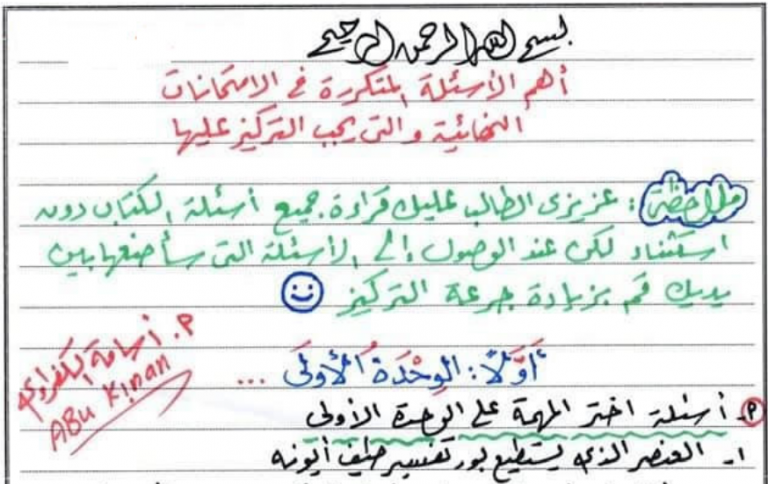 بسم الله الرحمن الرحيم
أهم الأسئلة المتكررة في الامتحانات
النهائية والتي يجب التركيز عليها
ملاحظة: عزيزي الطالب عليك قراءة جميع أسئلة الكتاب دون
استثناء لكن عند الوصول إلى الأسئلة التي سأضعها بين
يديك قم بزيادة جرعة التركيز
م. أسامة
ABU Kinan
أَوَّلًا: الوِحْدَةُ الأُولَى ...
م- أسئلة اختر المهمة على الوحدة الأولى
١- العنصر الذي يستطيع بور تفسير طيف أيونه